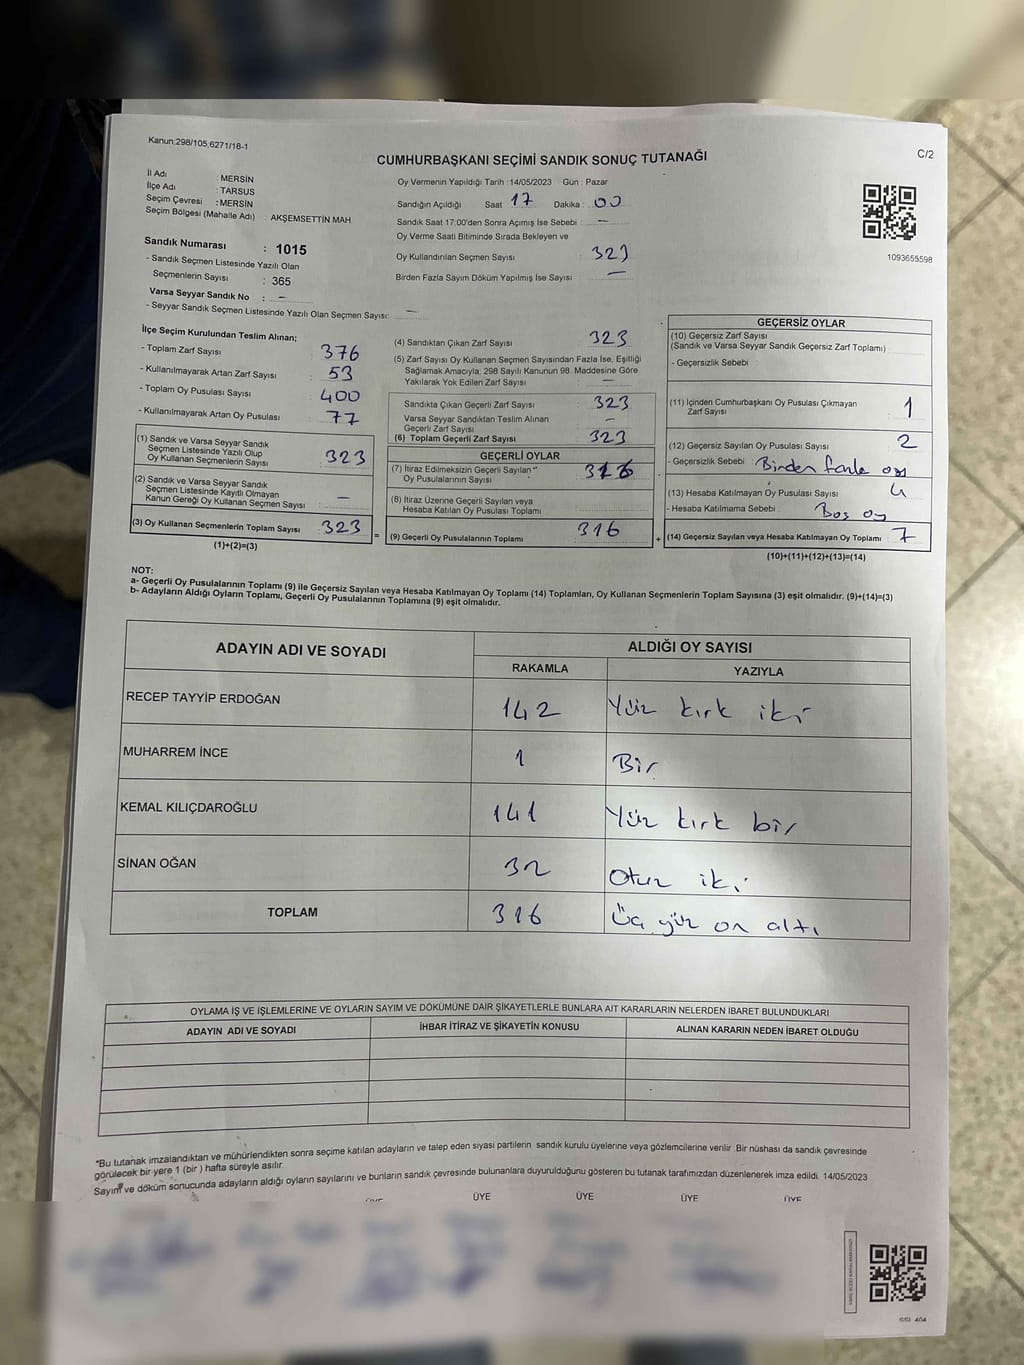 Kanun;298/105,6271/18-1
C/2
CUMHURBAŞKANI SEÇİMİ SANDIK SONUÇ TUTANAĞI
İl Adı : MERSİN
İlçe Adı : TARSUS
Seçim Çevresi : MERSİN
Seçim Bölgesi (Mahalle Adı) : AKŞEMSETTİN MAH.
Sandık Numarası : 1015
- Sandık Seçmen Listesinde Yazılı Olan
Seçmenlerin Sayısı : 365
Varsa Seyyar Sandık No : –
- Seyyar Sandık Seçmen Listesinde Yazılı Olan Seçmen Sayısı: –
Oy Vermenin Yapıldığı Tarih :14/05/2023 Gün : Pazar
Sandığın Açıldığı Saat 17 Dakika : 00
Sandık Saat 17:00'den Sonra Açımış İse Sebebi : –
Oy Verme Saati Bitiminde Sırada Bekleyen ve
Oy Kullandırılan Seçmen Sayısı 323
Birden Fazla Sayım Döküm Yapılmış İse Sayısı –
1093655598
İlçe Seçim Kurulundan Teslim Alınan;
- Toplam Zarf Sayısı : 376
- Kullanılmayarak Artan Zarf Sayısı : 53
- Toplam Oy Pusulası Sayısı : 400
- Kullanılmayarak Artan Oy Pusulası : 77
(1) Sandık ve Varsa Seyyar Sandık
Seçmen Listesinde Yazılı Olup
Oy Kullanan Seçmenlerin Sayısı : 323
(2) Sandık ve Varsa Seyyar Sandık
Seçmen Listesinde Kayıtlı Olmayan
Kanun Gereği Oy Kullanan Seçmen Sayısı : –
(3) Oy Kullanan Seçmenlerin Toplam Sayısı : 323
(1)+(2)=(3)
(4) Sandıktan Çıkan Zarf Sayısı 323
(5) Zarf Sayısı Oy Kullanan Seçmen Sayısından Fazla İse, Eşitliği
Sağlamak Amacıyla; 298 Sayılı Kanunun 98. Maddesine Göre
Yakılarak Yok Edilen Zarf Sayısı : –
Sandıkta Çıkan Geçerli Zarf Sayısı : 323
Varsa Seyyar Sandıktan Teslim Alınan
Geçerli Zarf Sayısı : –
(6) Toplam Geçerli Zarf Sayısı : 323
GEÇERLİ OYLAR
(7) İtiraz Edilmeksizin Geçerli Sayılan
Oy Pusulalarının Sayısı : 316
(8) İtiraz Üzerine Geçerli Sayılan veya
Hesaba Katılan Oy Pusulası Toplamı :
= (9) Geçerli Oy Pusulalarının Toplamı : 316
GEÇERSİZ OYLAR
(10) Geçersiz Zarf Sayısı
(Sandık ve Varsa Seyyar Sandık Geçersiz Zarf Toplamı)
- Geçersizlik Sebebi :
(11) İçinden Cumhurbaşkanı Oy Pusulası Çıkmayan
Zarf Sayısı : 1
(12) Geçersiz Sayılan Oy Pusulası Sayısı : 2
- Geçersizlik Sebebi : Birden fazla oy
(13) Hesaba Katılmayan Oy Pusulası Sayısı : 4
- Hesaba Katılmama Sebebi : Boş oy
+ (14) Geçersiz Sayılan veya Hesaba Katılmayan Oy Toplamı : 7
(10)+(11)+(12)+(13)=(14)
NOT:
a- Geçerli Oy Pusulalarının Toplamı (9) ile Geçersiz Sayılan veya Hesaba Katılmayan Oy Toplamı (14) Toplamları, Oy Kullanan Seçmenlerin Toplam Sayısına (3) eşit olmalıdır. (9)+(14)=(3)
b- Adayların Aldığı Oyların Toplamı, Geçerli Oy Pusulalarının Toplamına (9) eşit olmalıdır.
ADAYIN ADI VE SOYADI ALDIĞI OY SAYISI
RAKAMLA YAZIYLA
RECEP TAYYİP ERDOĞAN 142 Yüz kırk iki
MUHARREM İNCE 1 Bir
KEMAL KILIÇDAROĞLU 141 Yüz kırk bir
SİNAN OĞAN 32 Otuz iki
TOPLAM 316 Üç yüz on altı
OYLAMA İŞ VE İŞLEMLERİNE VE OYLARIN SAYIM VE DÖKÜMÜNE DAİR ŞİKAYETLERLE BUNLARA AİT KARARLARIN NELERDEN İBARET BULUNDUKLARI
ADAYIN ADI VE SOYADI İHBAR İTİRAZ VE ŞİKAYETİN KONUSU ALINAN KARARIN NEDEN İBARET OLDUĞU
*Bu tutanak imzalandıktan ve mühürlendikten sonra seçime katılan adayların ve talep eden siyasi partilerin sandık kurulu üyelerine veya gözlemcilerine verilir. Bir nüshası da sandık çevresinde
görülecek bir yere 1 (bir ) hafta süreyle asılır.
Sayım ve döküm sonucunda adayların aldığı oyların sayılarını ve bunların sandık çevresinde bulunanlara duyurulduğunu gösteren bu tutanak tarafımızdan düzenlenerek imza edildi. 14/05/2023
ÜYE ÜYE ÜYE ÜYE ÜYE